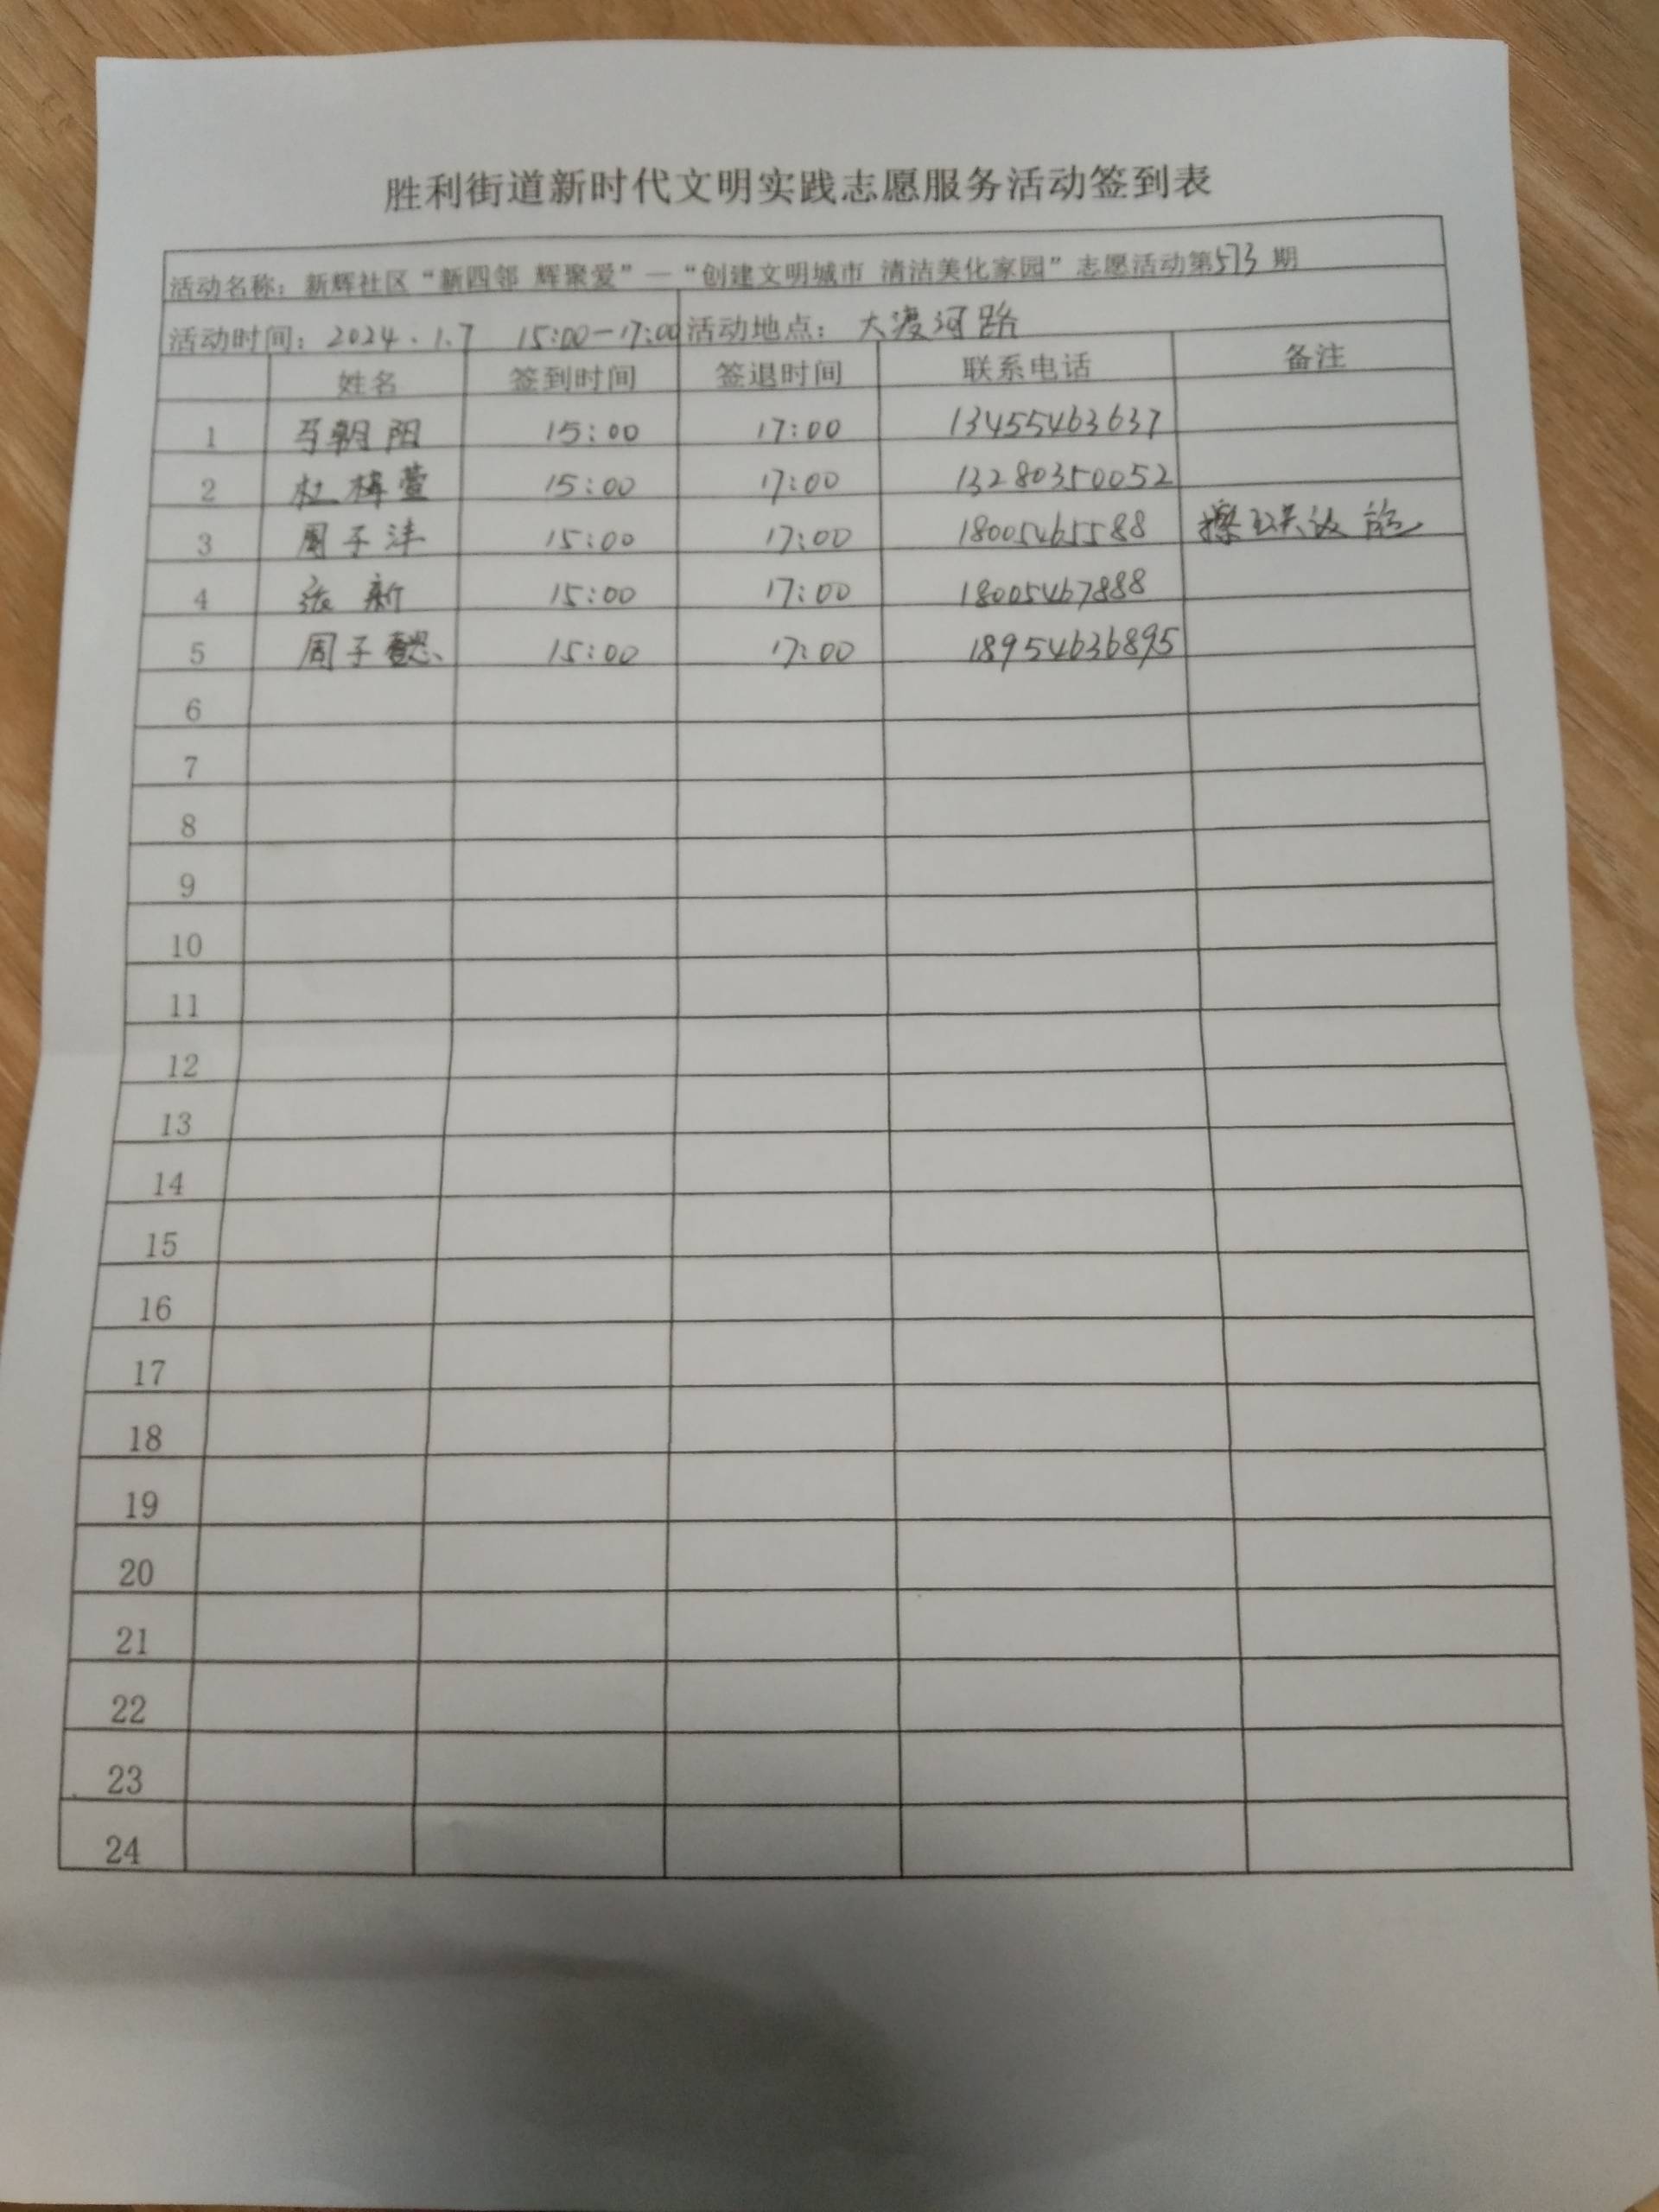 胜利街道新时代文明实践志愿服务活动签到表
活动名称：新辉社区“新四邻 辉聚爱”—“创建文明城市 清洁美化家园”志愿活动第573期
活动时间：2024.1.7 15:00-17:00 活动地点：大渡河路
姓名 签到时间 签退时间 联系电话 备注
1 马朝阳 15:00 17:00 13455463637
2 杜梓萱 15:00 17:00 13280350052
3 周子沣 15:00 17:00 18005465588 擦公共设施
4 张新 15:00 17:00 18005467888
5 周子 15:00 17:00 18954636895
6
7
8
9
10
11
12
13
14
15
16
17
18
19
20
21
22
23
24